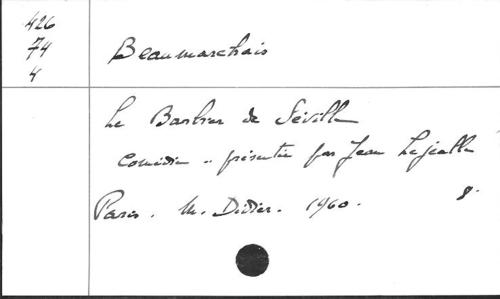 426
74
4
Beaumarchais
Le Barbier de Séville
Comédie .. présentée par Jean Lejealle
Paris. M. Didier. 1960. 8°